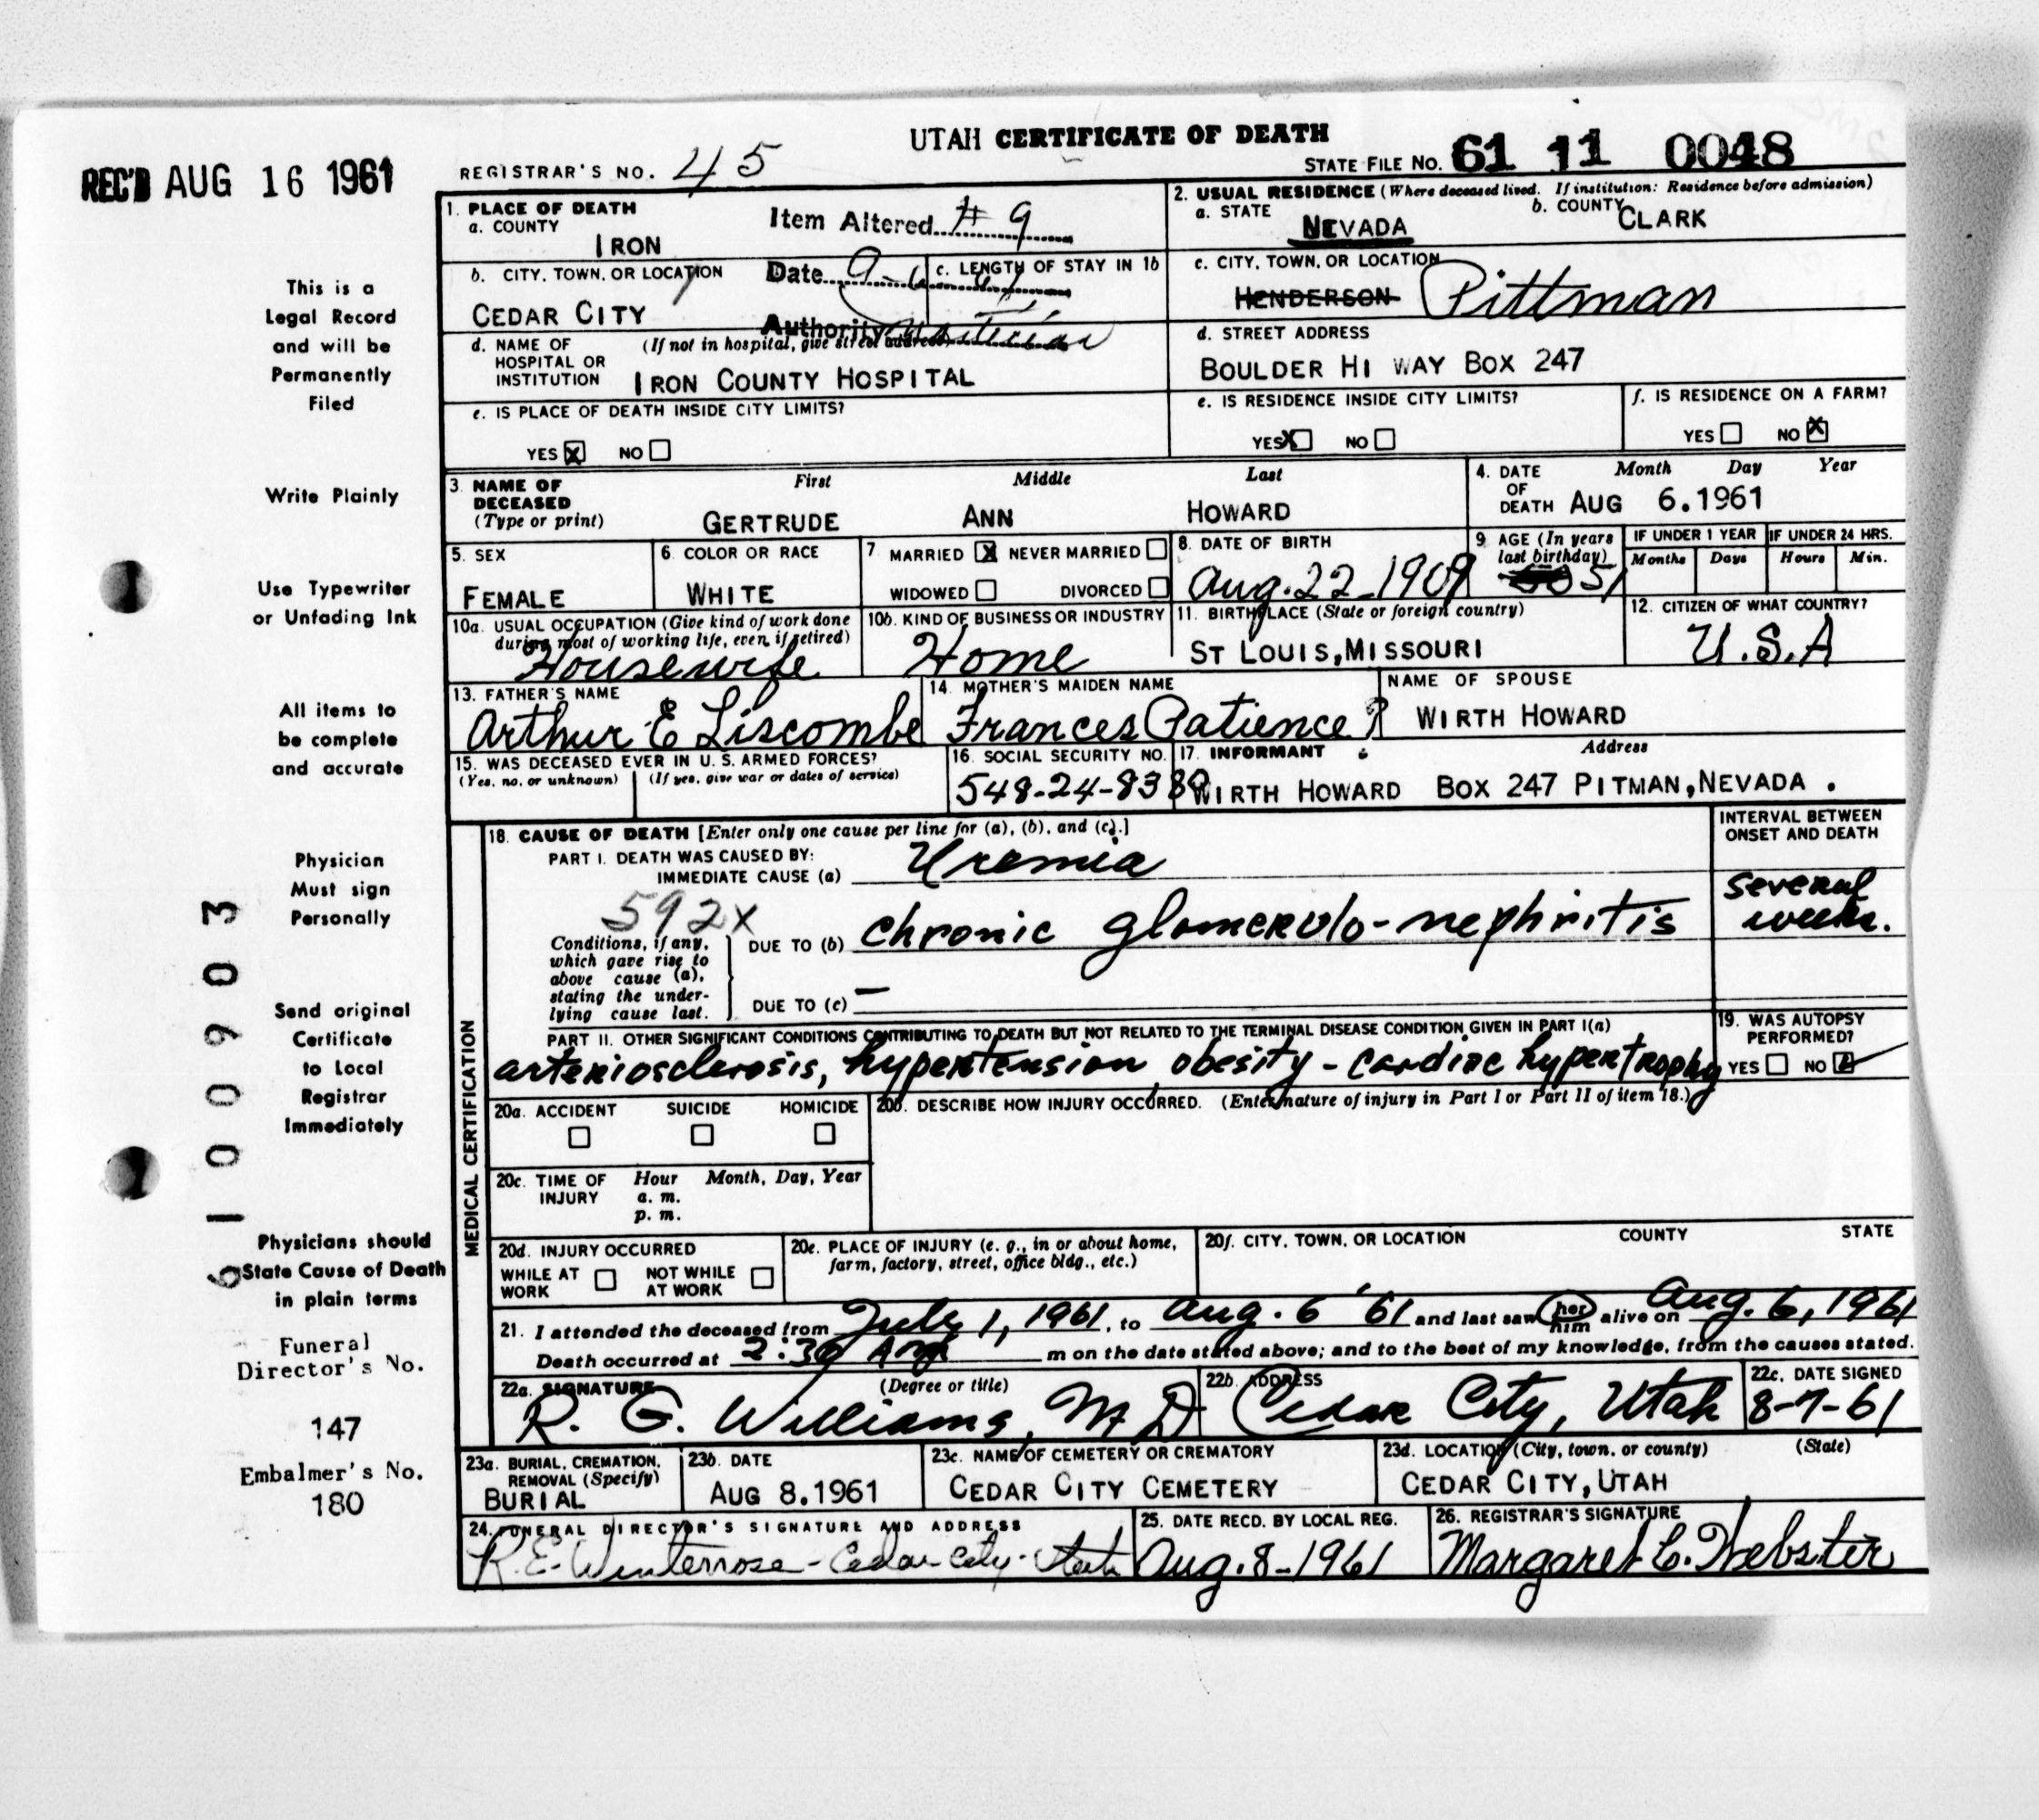 UTAH CERTIFICATE OF DEATH
REC'D AUG 16 1961
REGISTRAR'S NO. 45
STATE FILE NO. 61 11 0048
1. PLACE OF DEATH
a. COUNTY
IRON
Item Altered # 9
Date
Authority
b. CITY, TOWN, OR LOCATION
CEDAR CITY
c. LENGTH OF STAY IN 1b
d. NAME OF HOSPITAL OR INSTITUTION
(If not in hospital, give street address)
IRON COUNTY HOSPITAL
e. IS PLACE OF DEATH INSIDE CITY LIMITS?
YES X NO
2. USUAL RESIDENCE (Where deceased lived. If institution: Residence before admission)
a. STATE
NEVADA
b. COUNTY
CLARK
c. CITY, TOWN, OR LOCATION
HENDERSON Pittman
d. STREET ADDRESS
BOULDER HI WAY BOX 247
e. IS RESIDENCE INSIDE CITY LIMITS?
YES X NO
f. IS RESIDENCE ON A FARM?
YES NO X
3. NAME OF DECEASED
(Type or print)
First Middle Last
GERTRUDE ANN HOWARD
4. DATE OF DEATH
Month Day Year
AUG 6.1961
5. SEX
FEMALE
6. COLOR OR RACE
WHITE
7. MARRIED X NEVER MARRIED
WIDOWED DIVORCED
8. DATE OF BIRTH
Aug. 22 - 1909
9. AGE (In years last birthday)
51
IF UNDER 1 YEAR
Months Days
IF UNDER 24 HRS.
Hours Min.
10a. USUAL OCCUPATION (Give kind of work done during most of working life, even if retired)
Housewife
10b. KIND OF BUSINESS OR INDUSTRY
Home
11. BIRTHPLACE (State or foreign country)
ST LOUIS, MISSOURI
12. CITIZEN OF WHAT COUNTRY?
U.S.A
13. FATHER'S NAME
Arthur E Liscombe
14. MOTHER'S MAIDEN NAME
Frances Patience ?
NAME OF SPOUSE
WIRTH HOWARD
15. WAS DECEASED EVER IN U. S. ARMED FORCES?
(Yes, no, or unknown) (If yes, give war or dates of service)
16. SOCIAL SECURITY NO.
548-24-8389
17. INFORMANT Address
WIRTH HOWARD BOX 247 PITMAN, NEVADA .
18. CAUSE OF DEATH [Enter only one cause per line for (a), (b), and (c).]
PART I. DEATH WAS CAUSED BY:
IMMEDIATE CAUSE (a) Uremia
592X
Conditions, if any, which gave rise to above cause (a), stating the underlying cause last.
DUE TO (b) chronic glomerulo-nephritis
DUE TO (c) —
INTERVAL BETWEEN ONSET AND DEATH
several weeks.
PART II. OTHER SIGNIFICANT CONDITIONS CONTRIBUTING TO DEATH BUT NOT RELATED TO THE TERMINAL DISEASE CONDITION GIVEN IN PART I(a)
arteriosclerosis, hypertension, obesity - cardiac hypertrophy
19. WAS AUTOPSY PERFORMED?
YES NO
MEDICAL CERTIFICATION
20a. ACCIDENT SUICIDE HOMICIDE
20b. DESCRIBE HOW INJURY OCCURRED. (Enter nature of injury in Part I or Part II of item 18.)
20c. TIME OF INJURY
Hour Month, Day, Year
a. m.
p. m.
20d. INJURY OCCURRED
WHILE AT WORK NOT WHILE AT WORK
20e. PLACE OF INJURY (e. g., in or about home, farm, factory, street, office bldg., etc.)
20f. CITY, TOWN, OR LOCATION COUNTY STATE
21. I attended the deceased from July 1, 1961, to Aug. 6 '61 and last saw her him alive on Aug. 6, 1961
Death occurred at 2:30 AM m on the date stated above; and to the best of my knowledge, from the causes stated.
22a. SIGNATURE (Degree or title)
R. G. Williams, M D
22b. ADDRESS
Cedar City, Utah
22c. DATE SIGNED
8-7-61
23a. BURIAL, CREMATION, REMOVAL (Specify)
BURIAL
23b. DATE
AUG 8.1961
23c. NAME OF CEMETERY OR CREMATORY
CEDAR CITY CEMETERY
23d. LOCATION (City, town, or county) (State)
CEDAR CITY, UTAH
24. FUNERAL DIRECTOR'S SIGNATURE AND ADDRESS
R. E. Winterrose - Cedar City - Utah
25. DATE RECD. BY LOCAL REG.
Aug. 8 - 1961
26. REGISTRAR'S SIGNATURE
Margaret C. Webster
This is a
Legal Record
and will be
Permanently
Filed
Write Plainly
Use Typewriter
or Unfading Ink
All items to
be complete
and accurate
Physician
Must sign
Personally
Send original
Certificate
to Local
Registrar
Immediately
Physicians should
State Cause of Death
in plain terms
Funeral
Director's No.
147
Embalmer's No.
180
61 00903